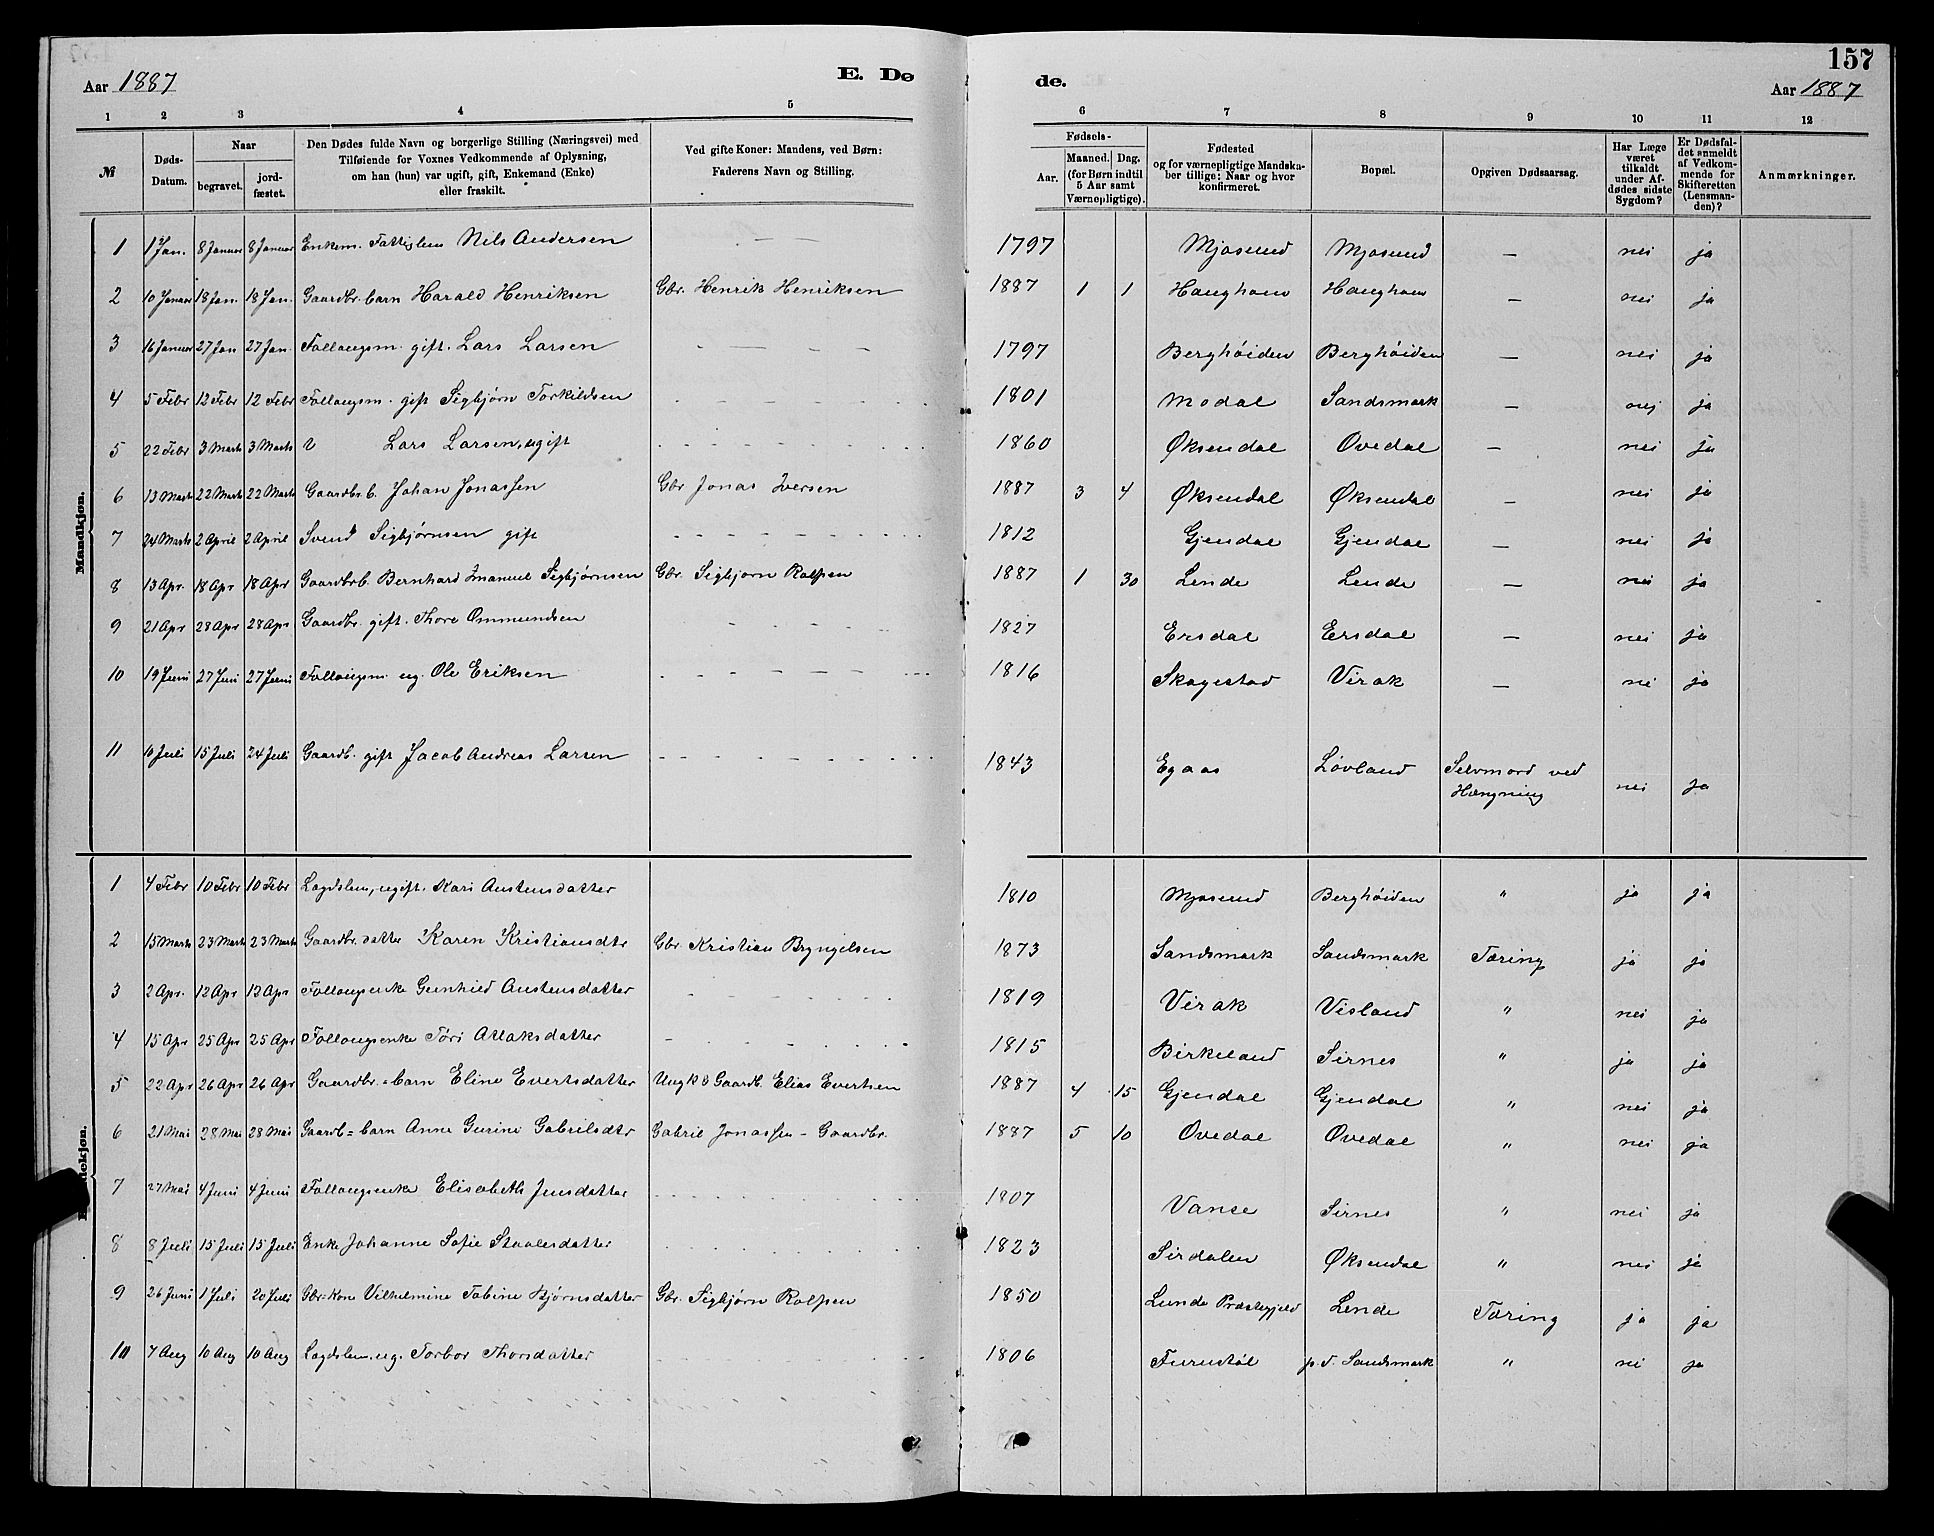 157
Aar 1887 E. Dø de. Aar 1887
1 2 3 4 5 6 7 8 9 10 11 12
№ | Døds-Datum. | Naar begravet. | jordfæstet. | Den Dødes fulde Navn og borgerlige Stilling (Næringsvei) med Tilføiende for Voxnes Vedkommende af Oplysning, om han (hun) var ugift, gift, Enkemand (Enke) eller fraskilt. | Ved gifte Koner: Mandens, ved Børn: Faderens Navn og Stilling. | Fødsels- Aar. | Maaned. | Dag. (for Børn indtil 5 Aar samt Værnepligtige). | Fødested og for værnepligtige Mandskaber tillige: Naar og hvor konfirmeret. | Bopæl. | Opgiven Dødsaarsag. | Har Læge været tilkaldt under Afdødes sidste Sygdom? | Er Dødsfaldet anmeldt af Vedkommende for Skifteretten (Lensmanden)? | Anmærkninger.
Mandkjøn.
1 1 Jan. 8 Januar 8 Januar Enkem. Fattiglem Nils Andersen — — 1797 Mjosund Mjosund — nei ja
2 10 Januar 18 Jan. 18 Jan. Gaardbr. barn Harald Henriksen Gbr. Henrik Henriksen 1887 1 1 Haughom Haughom — nei ja
3 16 Januar 27 Jan 27 Jan. Follaugsm. gift. Lars Larsen 1797 Berghöiden Berghöiden — nei ja
4 5 Febr 12 Febr 12 Febr Follaugsm. gift Sigbjørn Torkildsen 1801 Modal Sandsmark — nej ja
5 22 Febr 3 Marts 3 Marts Lars Larsen, ugift 1860 Øksendal Ovedal — nei ja
6 13 Marts 22 Marts 22 Marts Gaardbr. b. Johan Jonassen Gbr Jonas Iversen 1887 3 4 Øksendal Øksendal — nei ja
7 24 Marts 2 April 2 April Svend Sigbjørnsen gift 1812 Gjendal Gjendal — nei ja
8 13 Apr. 18 Apr 18 Apr Gaardbrb. Bernhard Imanuel Sigbjørnsen Gbr. Sigbjørn Rolfsen 1887 1 30 Lende Lende — nei ja
9 21 Apr 28 Apr 28 Apr Gaardbr. gift. Thore Ommundsen 1827 Ersdal Ersdal — nei ja
10 19 Juni 27 Juni 27 Juni Follaugsm ug. Ole Eriksen 1816 Skagestad Virak — nei ja
11 10 Juli 15 Juli 24 Juli Gaardb. gift Jacob Andreas Larsen 1843 Egaas Løvland Selvmord ved Hængning nei ja
1 4 Febr 10 Febr 10 Febr Lægdslem, ugift. Kari Austensdatter 1810 Mjosund Berghöiden " ja ja
2 15 Marts 23 Marts 23 Marts Gaardbr. datter Karen Kristiansdtr Gbr. Kristian Bryngelsen 1873 Sandsmark Sandsmark Tæring ja ja
3 2 Apr. 12 Apr 12 Apr Follaugsenke Gunhild Austensdatter 1819 Virak Visland " nei ja
4 15 Apr 25 Apr 25 Apr Follaugsenke Tori Atlaksdatter 1815 Birkeland Sirnes " ja ja
5 22 Apr 26 Apr 26 Apr Gaardbr.=barn Eline Evertsdatter Ungk & Gaardb. Elias Evertsen 1887 4 15 Gjendal Gjendal " nei ja
6 21 Mai 28 Mai 28 Mai Gaardb=barn Anne Gurine Gabrielsdtr Gabriel Jonassen - Gaardbr. 1887 5 10 Ovedal Ovedal " nei ja
7 27 Mai 4 Juni 4 Juni Follaugsenke Elisabeth Jensdatter 1807 Vanse Sirnes " nei ja
8 8 Juli 15 Juli 15 Juli Enke Johanne Sofie Staalesdatter 1823 Sirdalen Øksendal " nei ja
9 26 Juni 1 Juli 20 Juli Gbr=kone Vilhelmine Tobine Bjørnsdatter Gbr. Sigbjørn Rolfsen 1850 Lunde Præstegjeld Lende Tæring ja ja
10 7 Aug 10 Aug 10 Aug Lægdslem, ug. Torbor Thorsdatter 1806 Furustøl p.t. Sandsmark " nei ja